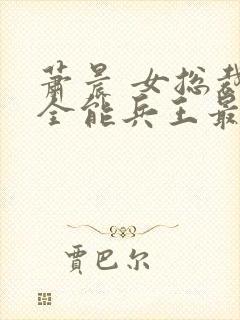 萧晨 女总裁
全能兵王最
贾巴尔